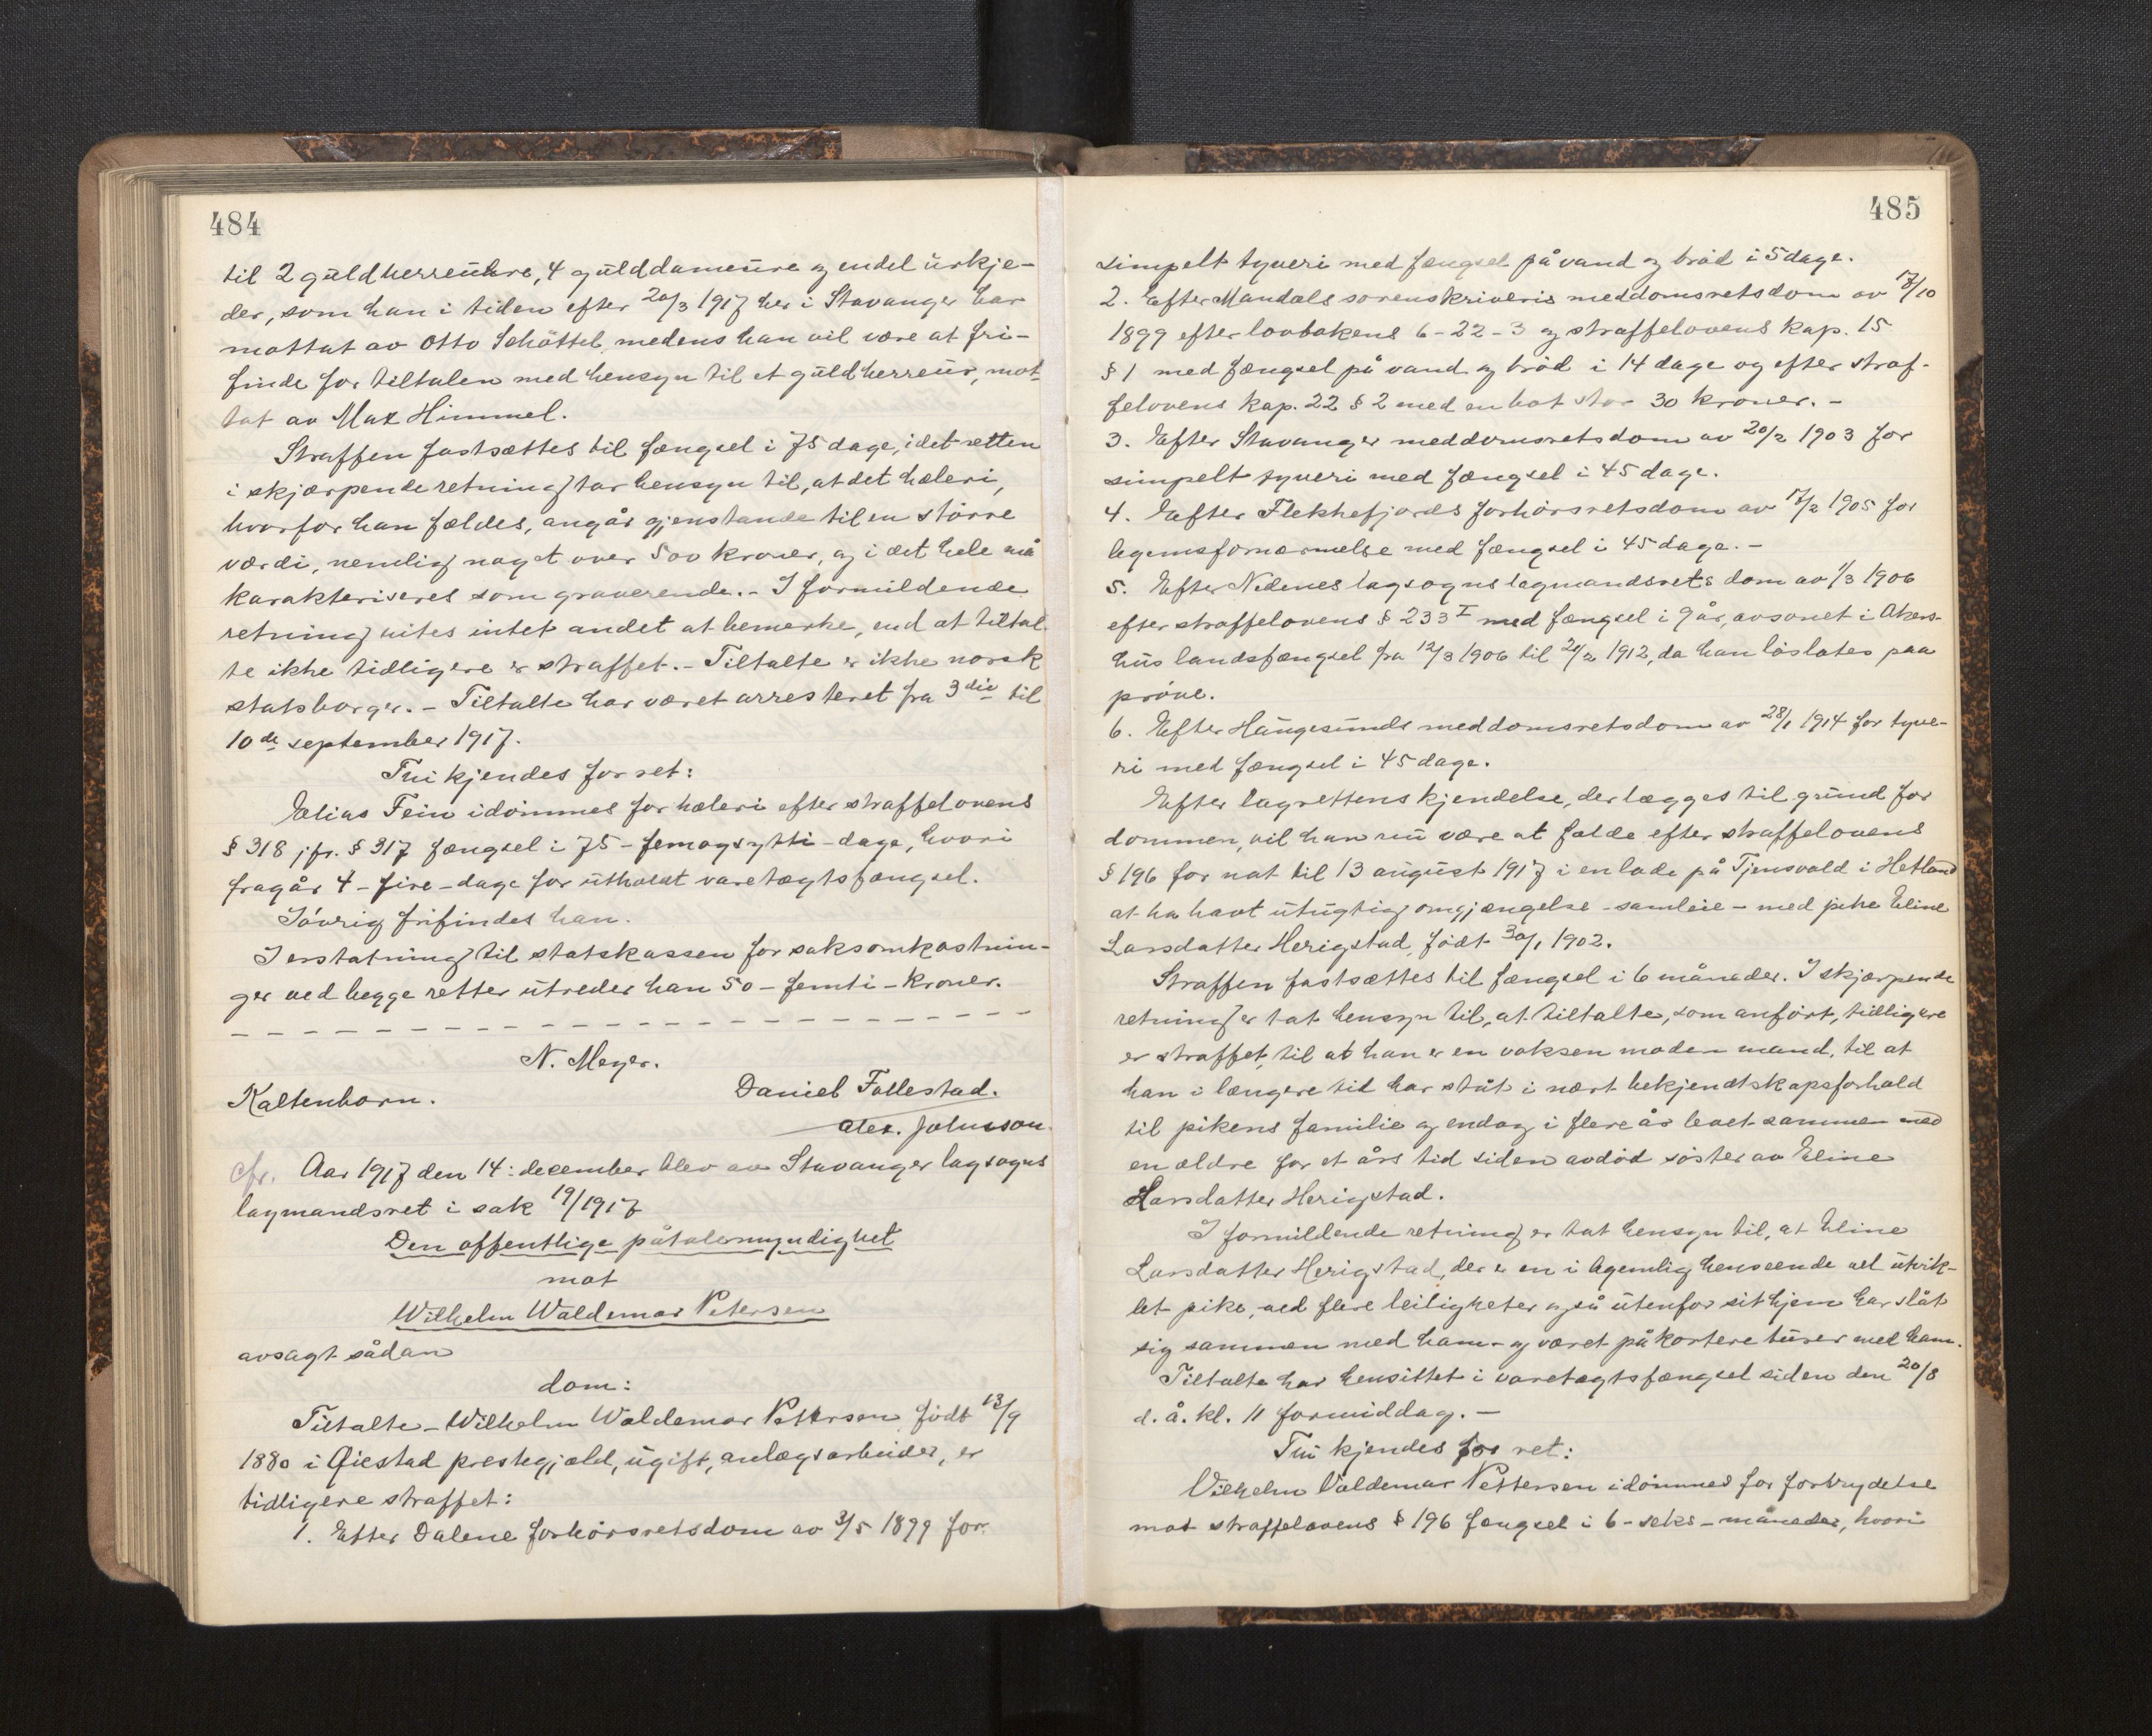 484
til 2 guldherreuhre, 4 gulddameure og endel urkje-
der, som han i tiden efter 20/3 1917 her i Stavanger har
mottat av Otto Schöttel, medens han vil være at fri-
finde for tiltalen med hensyn til et guldherreur, mot-
tat av Max Himmel.
Straffen fastsættes til fængsel i 75 dage, idet retten
i skjærpende retning tar hensyn til, at det hæleri,
hvorfor han fældes, angår gjenstande til en större
værdi, nemlig noget over 500 kroner, og i det hele må
karakteriseres som graverende. - I formildende
retning vites intet andet at bemerke, end at tiltal-
te ikke tidligere er straffet. - Tiltalte er ikke norsk
statsborger. - Tiltalte har været arresteret fra 3die til
10de september 1917.
Thi kjendes for ret:
Elias Fein idömmes for hæleri efter straffelovens
§ 318 jfr. § 317 fængsel i 75 - femogsytti - dage, hvori
fragår 4 - fire - dage for utholdt varetægtsfængsel.
Iövrig frifindes han.
I erstatning til statskassen for saksomkostnin-
ger ved begge retter utreder han 50 - femti - kroner.
N. Meyer.
Kaltenborn. Daniel Follestad.
Alex. Johnsson.
cfr. Aar 1917 den 14: december blev av Stavanger lagsogns
lagmandsret i sak 19/1917
Den offentlige påtalemyndighet
mot
Wilhelm Waldemar Petersen
avsagt sådan
dom:
Tiltalte - Wilhelm Waldemar Pettersen födt 13/9
1880 i Öiestad prestegjæld, ugift, anlægsarbeider, er
tidligere straffet:
1. Efter Dalene forhörsretsdom av 3/5 1899 for
485
simpelt tyveri med fængsel på vand og bröd i 5 dage.
2. Efter Mandals sorenskriveris meddomsretsdom av 17/10
1899 efter lovbokens 6-22-3 og straffelovens kap. 15
§ 1 med fængsel på vand og bröd i 14 dage og efter straf-
felovens kap. 22 § 2 med en bot stor 30 kroner. -
3. Efter Stavanger meddomsretsdom av 20/2 1903 for
simpelt tyveri med fængsel i 45 dage.
4. Efter Flekkefjords forhörsretsdom av 17/2 1905 for
legemsfornærmelse med fængsel i 45 dage. -
5. Efter Nedenes lagsogns lagmandsrets dom av 1/3 1906
efter straffelovens § 233 I med fængsel i 9 år, avsonet i Akers-
hus landsfængsel fra 12/3 1906 til 21/2 1912, da han löslates paa
pröve.
6. Efter Haugesunds meddomsretsdom av 28/1 1914 for tyve-
ri med fængsel i 45 dage.
Efter lagrettens kjendelse, der lægges til grund for
dommen, vil han nu være at fælde efter straffelovens
§ 196 for nat til 13 august 1917 i en lade på Tjensvold i Hetland
at ha havt utugtig omgjængelse - samleie - med pike Eline
Larsdatter Herigstad, födt 30/1 1902.
Straffen fastsættes til fængsel i 6 måneder. I skjærpende
retning er tat hensyn til, at tiltalte, som anfört, tidligere
er straffet, til at han er en voksen moden mand, til at
han i længere tid har ståt i nært bekjendtskapsforhold
til pikens familie og endog i flere år levet sammen med
en ældre for et års tid siden avdöd söster av Eline
Larsdatter Herigstad.
I formildende retning er tat hensyn til, at Eline
Larsdatter Herigstad, der er en i legemlig henseende vel utvik-
let pike, ved flere leiligheter også utenfor sit hjem har slåt
sig sammen med ham - og været på kortere turer med ham.
Tiltalte har hensittet i varetægtsfængsel siden den 20/8
d. å. kl. 11 formiddag. -
Thi kjendes for ret:
Vilhelm Valdemar Pettersen idömmes for forbrydelse
mot straffelovens § 196 fængsel i 6 - seks - måneder, hvori